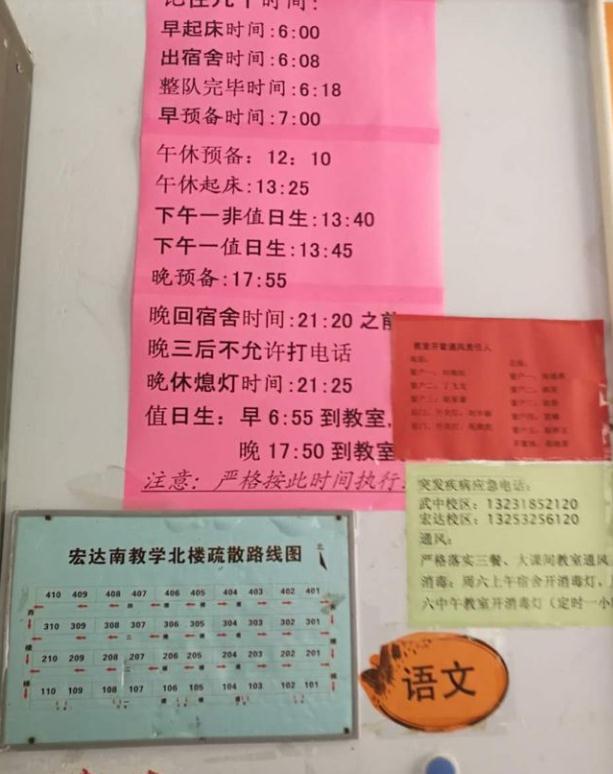 记住几个时间:
早起床时间:6:00
出宿舍时间:6:08
整队完毕时间:6:18
早预备时间:7:00
午休预备：12：10
午休起床:13:25
下午一非值日生:13:40
下午一值日生:13:45
晚预备:17:55
晚回宿舍时间:21:20 之前
晚三后不允许打电话
晚休熄灯时间:21:25
值日生：早 6:55 到教室,
晚 17:50 到教室
注意：严格按此时间执行
教室开窗通风责任人
突发疾病应急电话：
武中校区：13231852120
宏达校区：13253256120
通风：
严格落实三餐、大课间教室通风
消毒：周六上午宿舍开消毒灯，
六中午教室开消毒灯（定时一小
宏达南教学北楼疏散路线图
北
410 409 408 407 406 405 404 403 402 401
310 309 308 307 306 305 304 303 302 301
210 209 208 207 206 205 204 203 202 201
110 109 108 107 106 105 104 103 102 101
语文